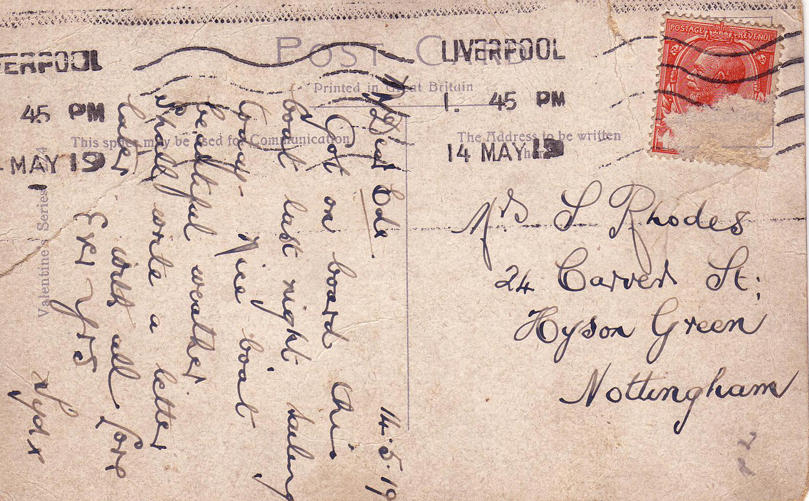 POST CARD
Printed in Great Britain
This space may be used for Communication
The Address to be written
Valentine's Series
LIVERPOOL
1. 45 PM
14 MAY 19
VERPOOL
45 PM
MAY 19
POSTAGE REVENUE
14.5.19
Dear Ede
Got on board this
boat last night sailing
today. Nice boat
beautiful weather
shall write a letter
later
with all love
Yrs
Syd x
Mrs S Rhodes
24 Carver St:
Hyson Green
Nottingham